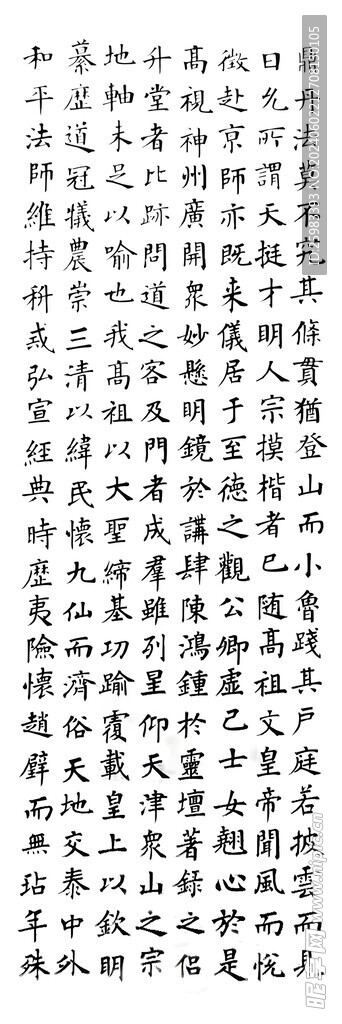 鼎丹法莫不究其條貫猶登山而小魯踐其戶庭若披雲而見
日允所謂天挺才明人宗摸楷者已随髙祖文皇帝聞風而悅
徵赴京師亦既来儀居于至德之觀公卿虛己士女翹心於是
髙視神州廣開衆妙懸明鏡於講肆陳鴻鍾於靈壇著錄之侶
升堂者比跡問道之客及門者成羣雖列星仰天津衆山之宗
地軸未足以喻也我髙祖以大聖締基功踰覆載皇上以欽明
纂歷道冠犧農崇三清以緯民懷九仙而濟俗天地交泰中外
和平法師維持科戒弘宣經典時歷夷險懷趙璧而無玷年殊
昵享网 www.nipic.cn